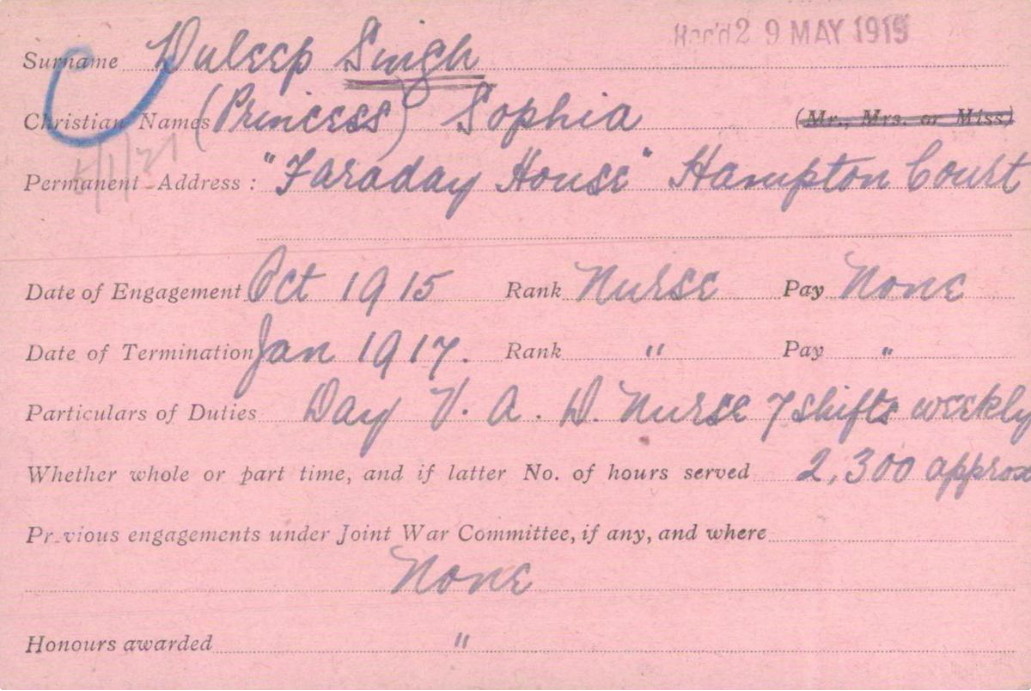 Rec'd 29 MAY 1919
Surname Duleep Singh
Christian Names (Princess) Sophia (Mr., Mrs. or Miss)
Permanent Address: "Faraday House" Hampton Court
Date of Engagement Oct 1915 Rank Nurse Pay None
Date of Termination Jan 1917. Rank " Pay "
Particulars of Duties Day V. A. D. Nurse 7 shifts weekly
Whether whole or part time, and if latter No. of hours served 2,300 approx
Previous engagements under Joint War Committee, if any, and where
None
Honours awarded "